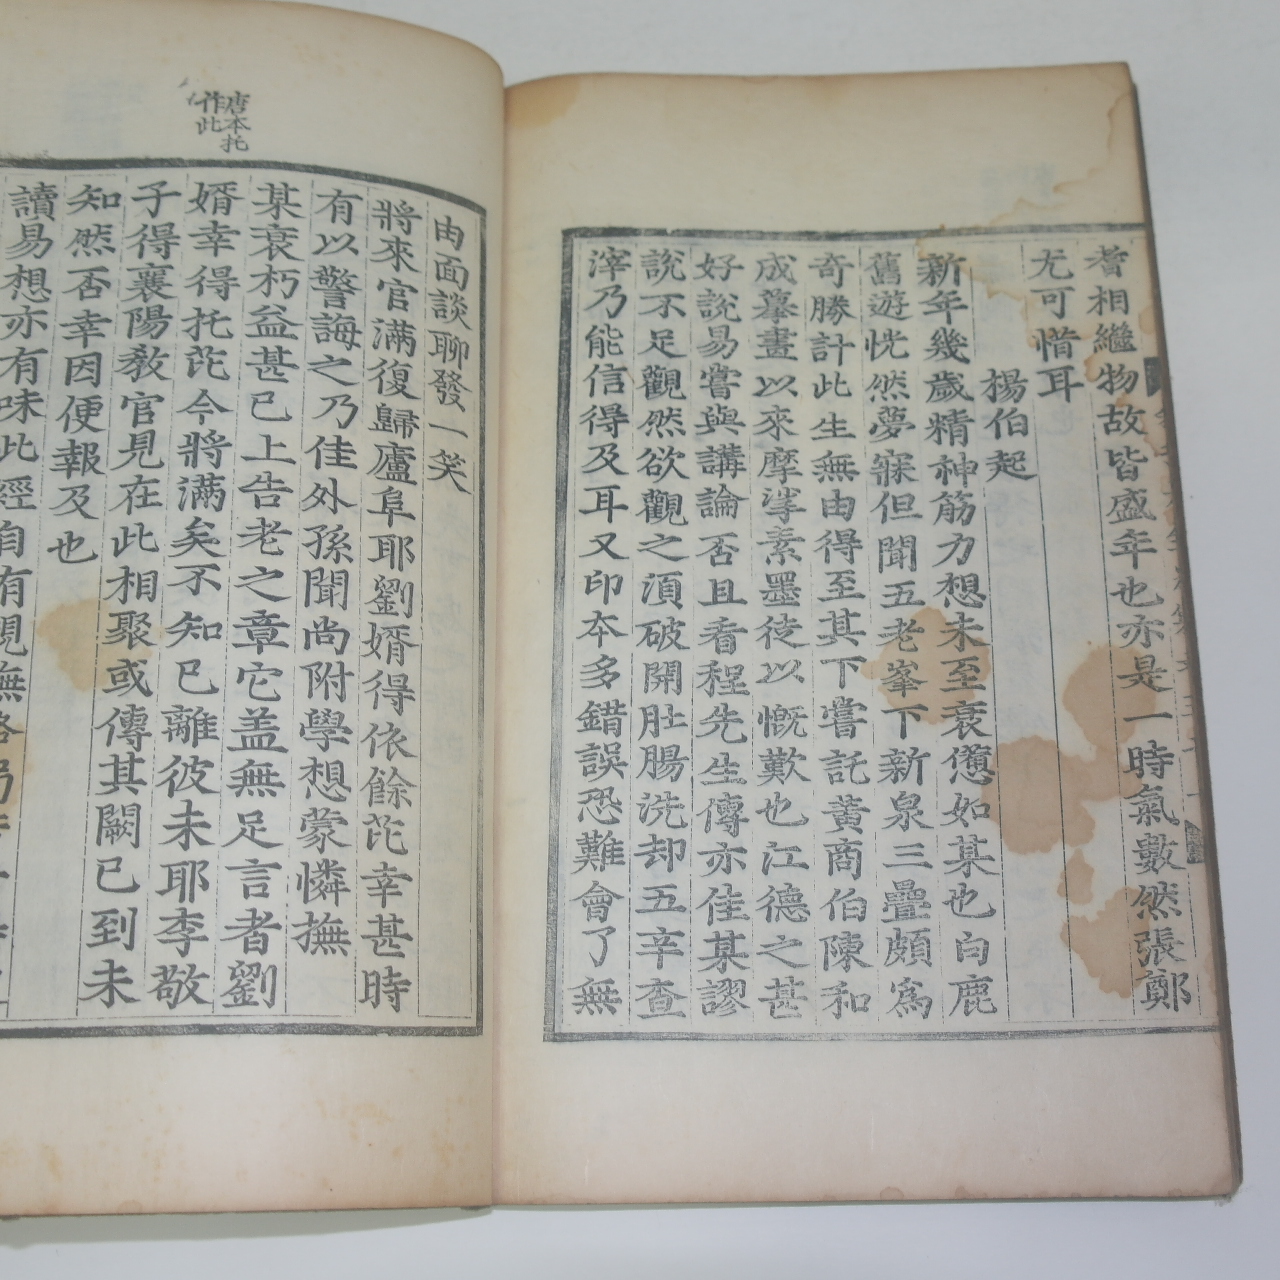 耆相繼物故皆盛年也亦是一時氣數然張鄭
尤可惜耳
楊伯起
新年幾歲精神筋力想未至衰憊如某也白鹿
舊遊恍然夢寐但聞五老峯下新泉三疊頗爲
奇勝計此生無由得至其下嘗託黃商伯陳和
成摹畫以來摩挲素墨徒以慨歎也江德之甚
好說易嘗與講論否且看程先生傳亦佳某謬
說不足觀然欲觀之須破開肚腸洗却五辛查
滓乃能信得及耳又印本多錯誤恐難會了無
由面談聊發一笑
將來官滿復歸廬阜耶劉婿得依餘芘幸甚時
有以警誨之乃佳外孫聞尚附學想蒙憐撫
某衰朽益甚已上告老之章它盖無足言者劉
婿幸得托芘今將滿矣不知已離彼未耶李敬
子得襄陽敎官見在此相聚或傳其闕已到未
知然否幸因便報及也
讀易想亦有味此經自有規
唐本托
作此